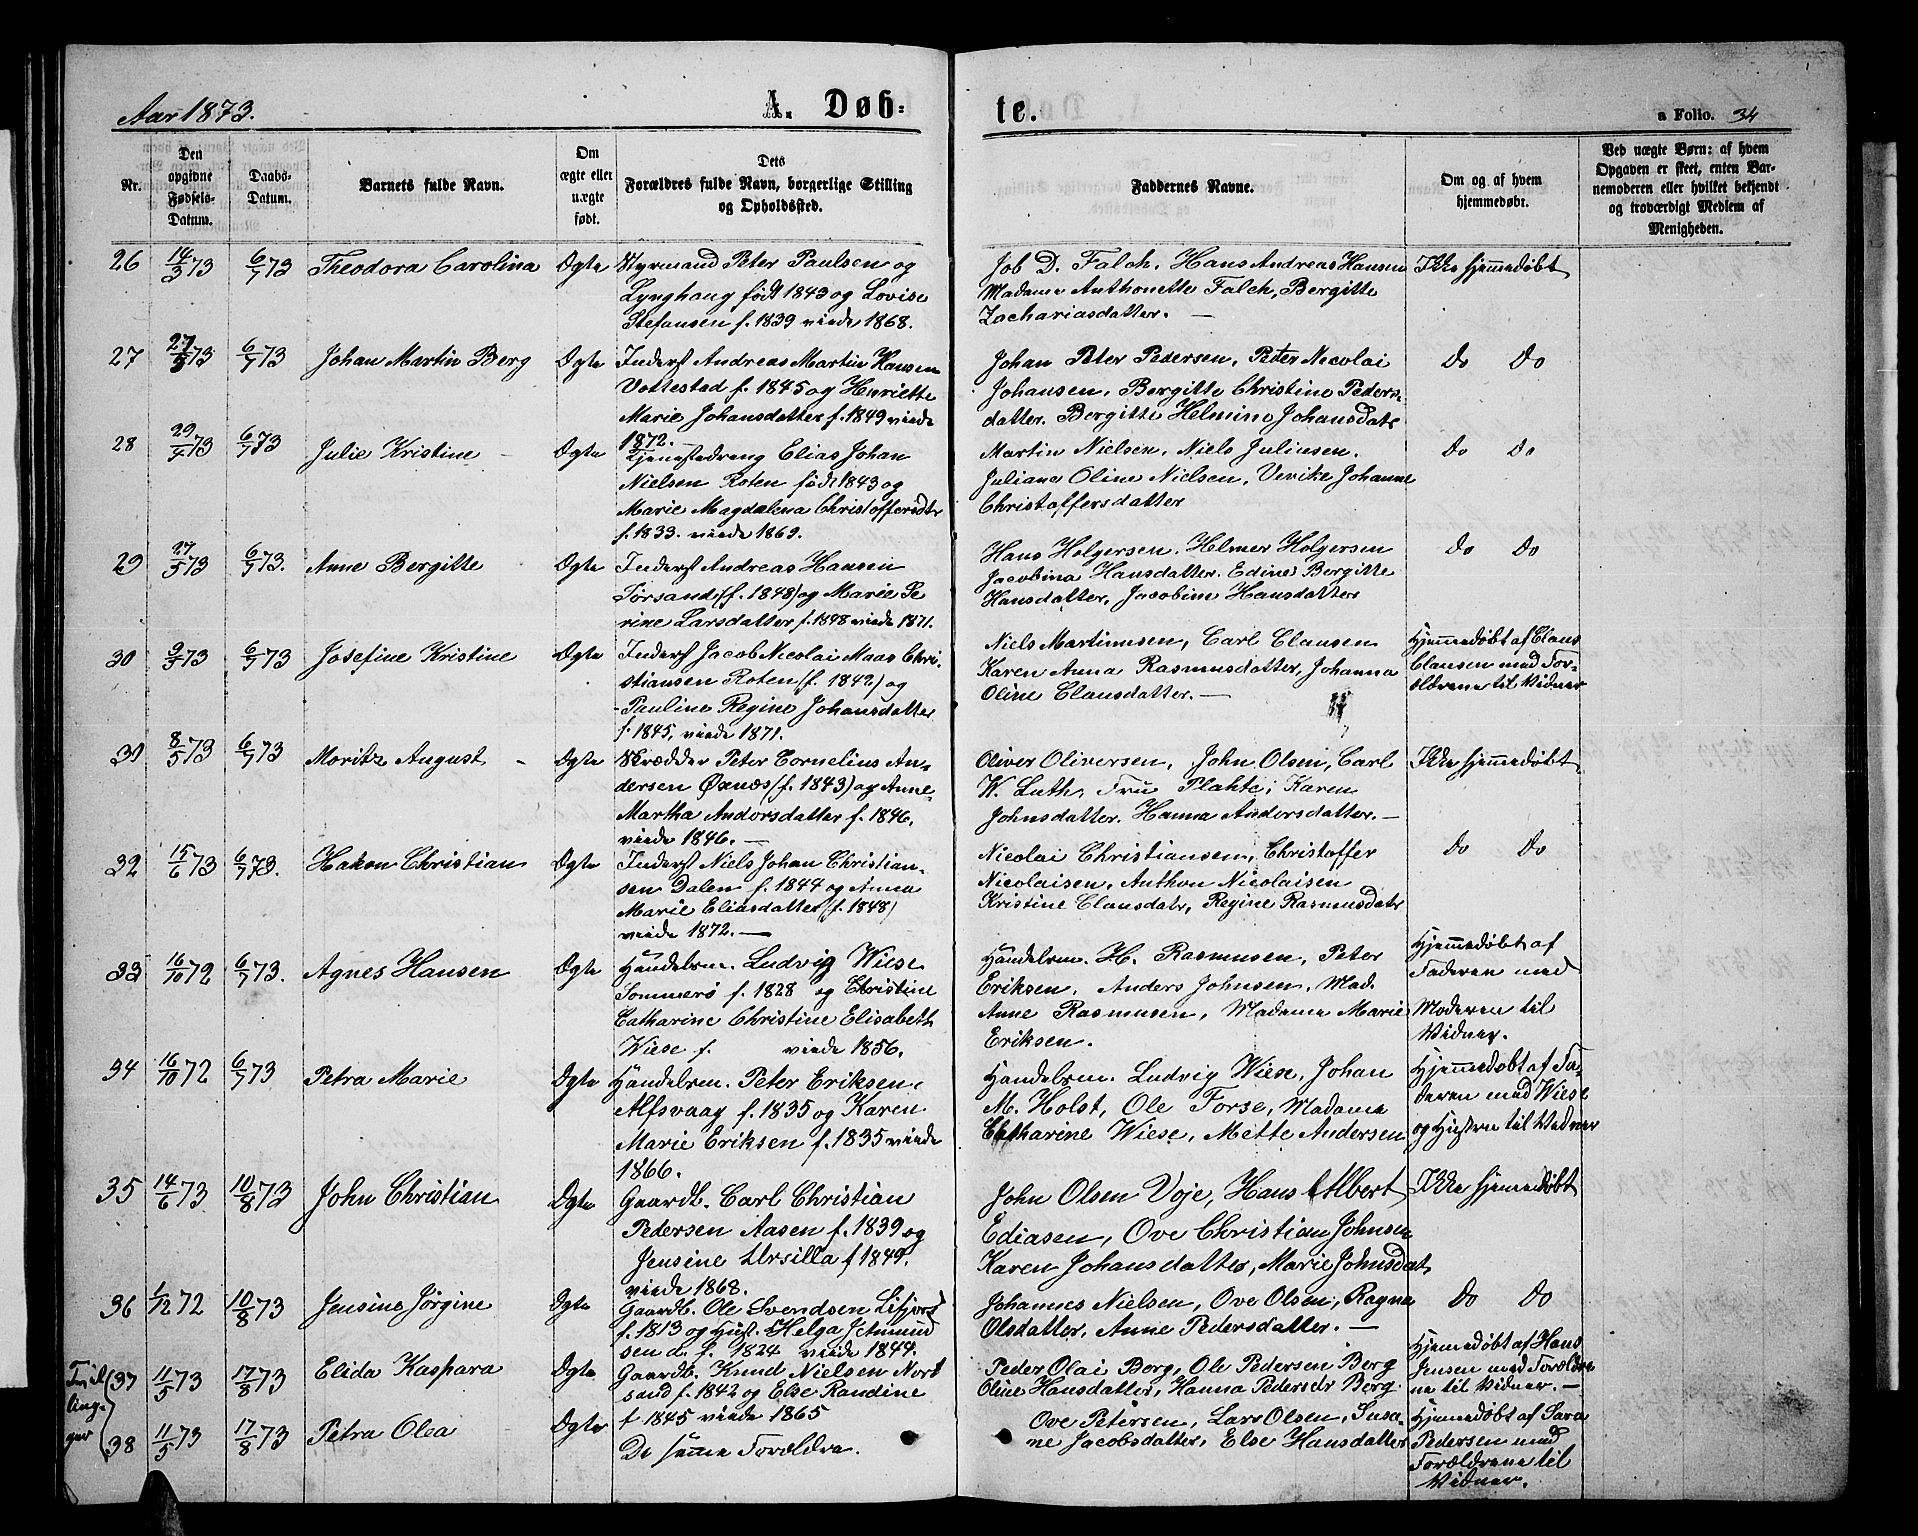 Aar 1873.
A. Døb-
te.
a Folio. 34
Nr.
Den opgivne Fødsels-Datum.
Daabs-Datum.
Barnets fulde Navn.
Om ægte eller uægte født.
Dets Forældres fulde Navn, borgerlige Stilling og Opholdssted.
Faddernes Navne.
Om og af hvem hjemmedøbt.
Ved uægte Børn: af hvem Opgaven er skeet, enten Barnemoderen eller hvilket bekjendt og troværdigt Medlem af Menigheden.
26 14/3 73 6/7 73 Theodora Carolina Ægte Styrmand Peter Paulsen og
Lynghaug født 1843 og Lovise
Stefansen f. 1839 viede 1868.
Job D. Falch, Hans Andreas Hansen
Madame Anthonette Falch, Bergitte
Zachariasdatter. —
Ikke hjemmedøbt
27 27/3 73 6/7 73 Johan Martin Berg Ægte Inderst Andreas Martin Hansen
Vottestad f. 1845 og Henriette
Marie Johansdatter f. 1849 viede
1872.
Johan Peter Pedersen, Peter Nicolai
Johansen, Bergitte Christine Peders-
datter. Bergitte Helmine Johansdatr
Do Do
28 29/4 73 6/7 73 Julie Kristine Ægte Tjenestedreng Elias Johan
Nielsen Roten født 1843 og
Marie Magdalena Christoffersdtr
f. 1833. viede 1869.
Martin Nielsen, Niels Juliusen.
Juliane Oline Nielsen, Verike Johanne
Christoffersdatter
Do Do
29 27/5 73 6/7 73. Anne Bergitte Ægte Inderst Andreas Hansen
Torsand (f. 1848) og Marie Pe
rine Larsdatter f. 1848 viede 1871.
Hans Holgersen. Helmer Holgersen
Jacobina Hansdatter. Edine Bergitte
Hansdatter, Jacobine Hansdatter
Do Do
30 9/3 73 6/7 73 Josefine Kristine Ægte Inderst Jacob Nicolai Maas Chri-
stiansen Roten (f. 1842) og
Pauline Regine Johansdatter
f. 1845, viede 1871.
Niels Martinusen, Carl Clausen
Karen Anna Rasmusdatter, Johanna
Oline Clausdatter. —
Hjemmedøbt af Claus
Clausen med For-
ældrene til Vidner
31 8/5 73 6/7 73 Moritz August Ægte Skrædder Peter Cornelius An-
dersen Øxnæs (f. 1843) og Anne
Martha Andorsdatter f. 1846,
viede 1846. —
Oliver Oliversen, John Olsen, Carl
W. Luth, Fru Plahte, Karen
Johnsdatter. Hanna Andersdatter. —
Ikke hjemmedøbt
32 15/6 73 6/7 73. Hakon Christian Ægte Inderst Niels Johan Christian-
sen Dalen f. 1844 og Anna
Marie Eliasdatter (f. 1848)
viede 1872. —
Nicolai Christiansen, Christoffer
Nicolaisen, Anthon Nicolaisen
Kristine Clausdatr, Regine Rasmusdatr
Do Do
33 16/10 72 6/7 73. Agnes Hansen Ægte Handelsm. Ludvig Wiese
Sommerø f. 1828 og Christine
Catharine Christine Elisabeth
Wiese f. viede 1856.
Handelsm. H. Rasmusen, Peter
Eriksen, Anders Johnsen, Mad.
Anne Rasmusen, Madame Marie
Eriksen.
Hjemmedøbt af
Faderen med
Moderen til
Vidner.
34 16/10 72 6/7 73 Petra Marie Ægte Handelsm. Peter Eriksen
Alfsvaag f. 1835 og Karen
Marie Eriksen f. 1835 viede
1866.
Handelsm. Ludvig Wiese, Johan
M. Holst, Ole Forse, Madame
Catharine Wiese, Mette Andersen
Hjemmedøbt af Fa-
deren med Wiese
og Hustru til Vidner
35 14/6 73 10/8 73 John Christian Ægte Gaardb. Carl Christian
Pedersen Aasen f. 1839 og
Jensine Ursilla f 1849.
viede 1868.
John Olsen Voje, Hans Albert
Ediasen, Ove Christian Johnsen
Karen Johansdatter, Marie Johnsdat
Ikke hjemmedøbt
36 1/12 72 10/8 73 Jensine Jørgine Ægte Gaardb. Ole Svendsen Lifjord
f. 1813 og Hust. Helga Jetmund
sen d. f. 1824 viede 1844.
Johannes Nielsen, Ove Olsen, Ragna
Olsdatter, Anne Pedersdatter. —
Do Do
Tvil
linger
37 11/5 73 17/8 73 Elida Kaspara Ægte Gaardb. Knud Nielsen Nord
sand f. 1842 og Else Randine
f 1845 viede 1865
Peder Olai Berg, Ole Pedersen Berg
Oline Hansdatter, Hanna Pedersdr Berg
Hjemmedøbt af Hans
Jensen med Forældre
ne til Vidner. —
38 11/5 73 17/8 73 Petra Olea Ægte De samme Forældre.
Ove Petersen, Lars Olsen, Susa-
ne Jacobsdatter, Else Hansdatter
Hjemmedøbt af Sara
Pedersen med
Forældrene til
Vidner.